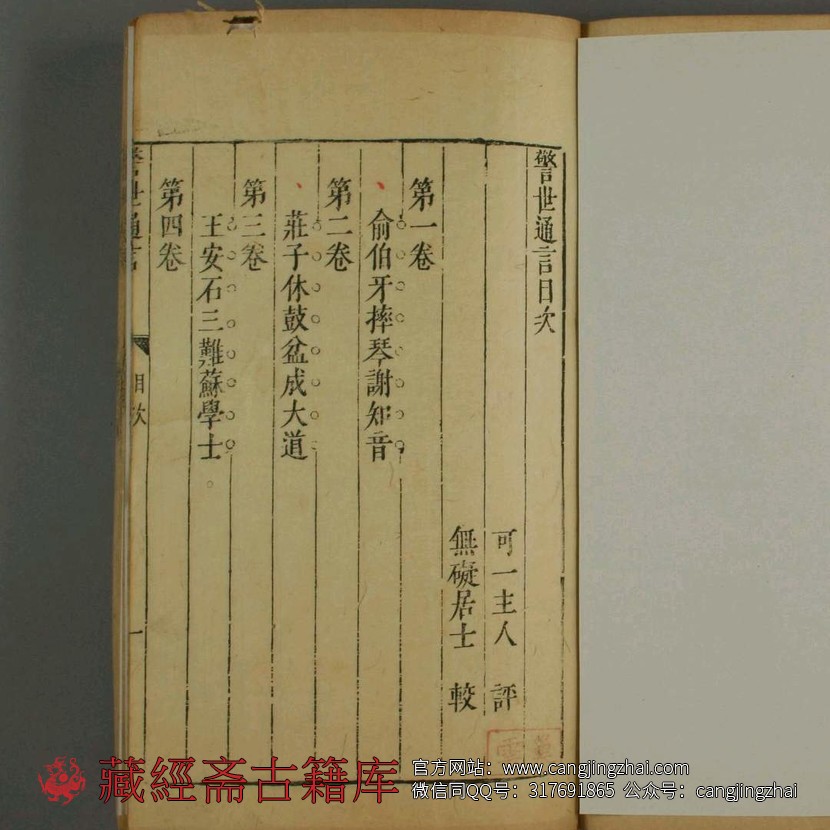 警世通言目次
可一主人 評
無礙居士 較
第一卷
俞伯牙摔琴謝知音
第二卷
莊子休鼓盆成大道
第三卷
王安石三難蘇學士
第四卷
警世通言
目次
一
藏經斋古籍库
官方网站：www.cangjingzhai.com
微信同QQ号：317691865 公众号：cangjingzhai